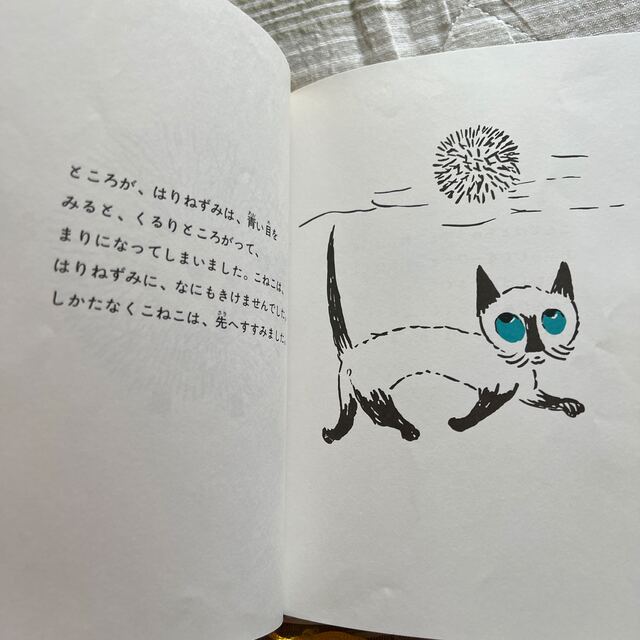 ところが、はりねずみは、青い目を
みると、くるりところがって、
まりになってしまいました。こねこは、
はりねずみに、なにもきけませんでした。
しかたなくこねこは、先へすすみました。